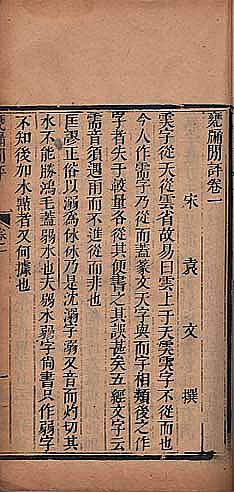 甕牖閒評卷一
宋 袁 文 撰
需字從天從雲省故易曰雲上于天需需字不從而也
今人作需字乃從而蓋篆文天字與而字相類後之作
字者失于較量各從其便書之其誤甚矣五經文字云
需音須遇雨而不進從而非也
匡謬正俗以溺為休休乃是沈溺字溺又音而灼切其
水不能勝鴻毛蓋弱水也夫弱水弱字尚書只作弱字
不知後加水㸃者又何據也
甕牖閒評 卷一 一